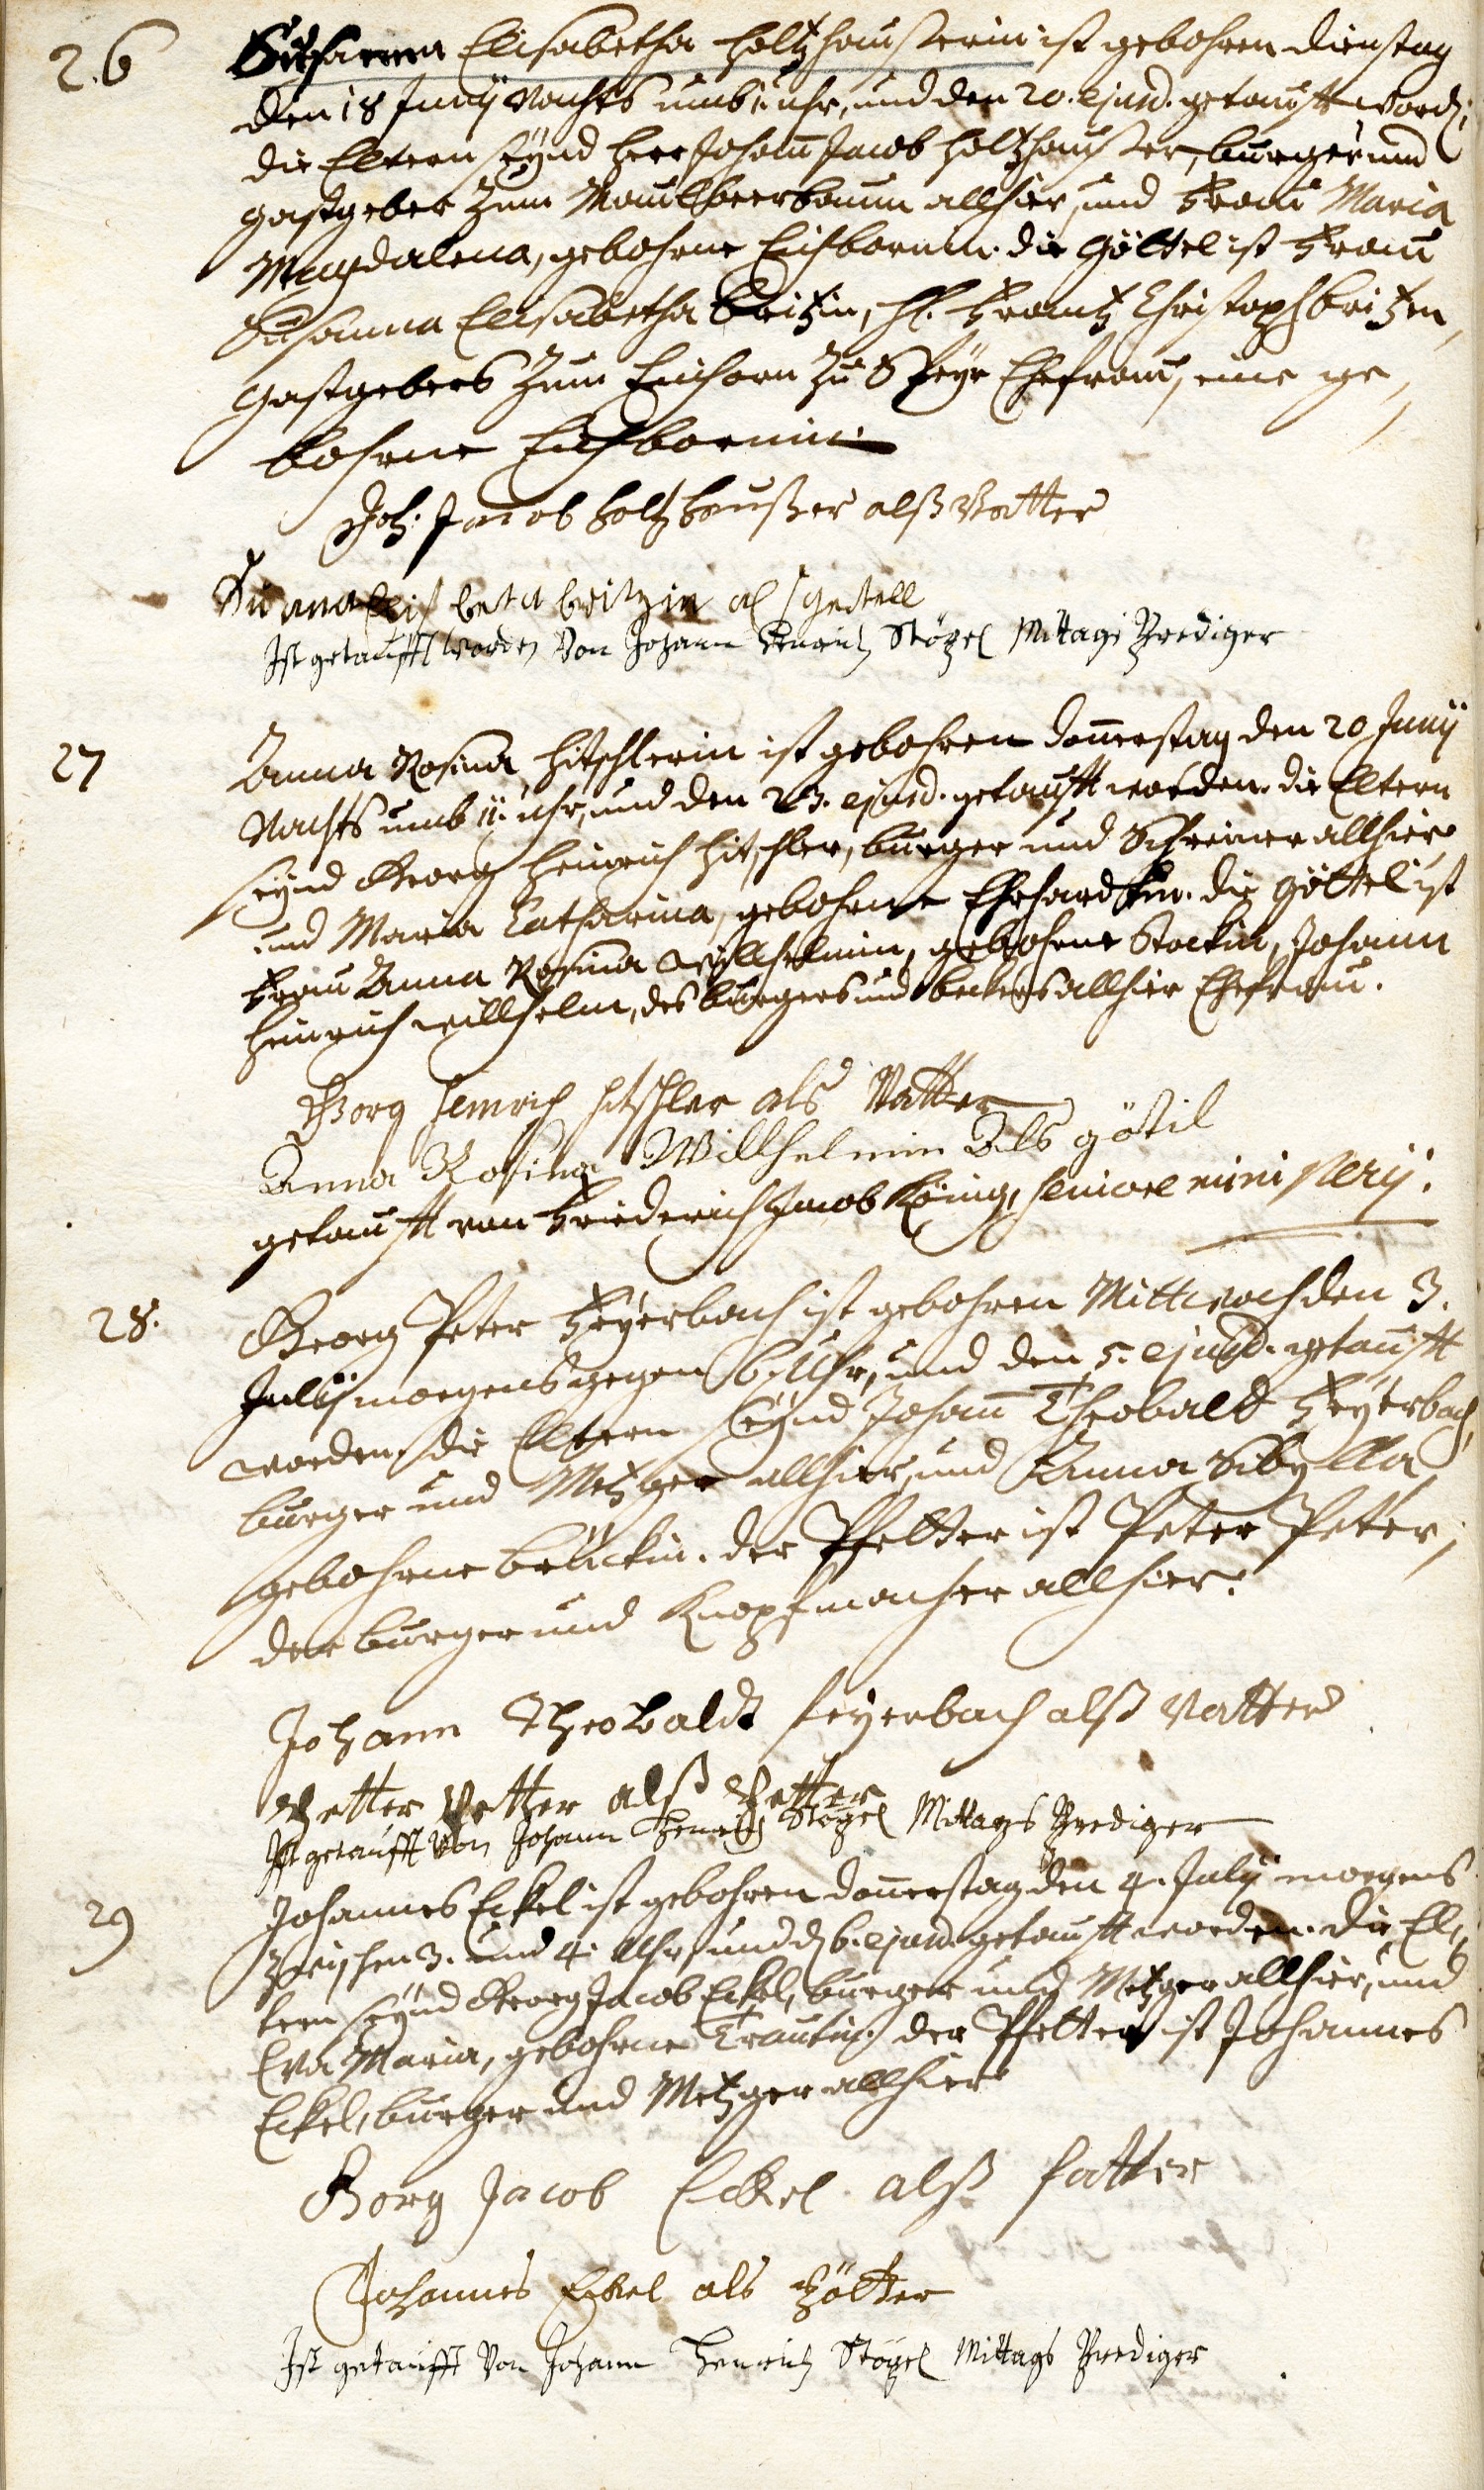 26 Susanna Elisabetha Holtzhaußerin ist gebohren dienstag
den 18 Junij Nachts umb 11 uhr, und den 20. ejusd. getaufft word:
die Eltern seynd Herr Johañ Jacob Holtzhaußer, burger und
gastgeber zum Maulbeerbaum allhier, und Frau Maria
Magdalena, gebohrne Eichbornin. die Göttel ist Frau
Susanna Elisabetha Britzin, H. Frantz Christoph Britzen,
Gastgebers zum Einhorn zu Speyr Ehefrau, eine ge,,
bohrne Eichbornin.
Joh: Jacob Holtzhaußer alß Vatter
beta britzin als gettell
Ist getaufft worden Von Johann Henrich Stögel Mittags Prediger
27 Anna Rosina Hitschlerin ist gebohren Doñerstag den 20 Junij
Nachts umb 11. uhr, und den 23. ejusd. getaufft worden. die Eltern
seynd Georg Heinrich Hitschler, burger und Schreiner allhier
und Maria Catharina, gebohrne Ehrhardtin. die Göttel ist
Frau Anna Rosina Willhelmin, gebohrne Stockin, Johann
Heinrich Willhelm, des burgers und beckers allhier Ehefrau.
Georg Henrich Hitschler als Vatter
Anna Rosina Willhelmin Als götil
getaufft von Friederich Jacob König, seniore ministerij.
28. Georg Peter Feyerbach ist gebohren Mittwoch den 3.
Julij morgens gegen 6. Uhr, und den 5. ejusd. getaufft
worden. die Eltern seynd Johañ Theobald Feyerbach,
burger und Metzger allhier, und Anna Sibylla,
gebohrne brückin. der Pfetter ist Peter Peter,
der burger und Knopfmacher allhier.
Johann Theobaldt feyerbach alß Vatter
Petter Petter alß Petter
Ist getaufft Von Johann Henrich Stögel Mittags Prediger
29 Johannes Eckel ist gebohren doñerstag den 4. July morgens
zwischen 3. und 4. Uhr, und d 6. ejusd. getaufft worden. die El,,
tern seynd Georg Jacob Eckel, burger und Metzger allhier, und
Eva Maria, gebohrne Trautin. der Pfetter ist Johannes
Eckel, burger und Metzger allhier
Gorg Jacob Eckel alß fatter
Johannes Eckel als pötter
Ist getaufft Von Johann Henrich Stögel Mittags Prediger